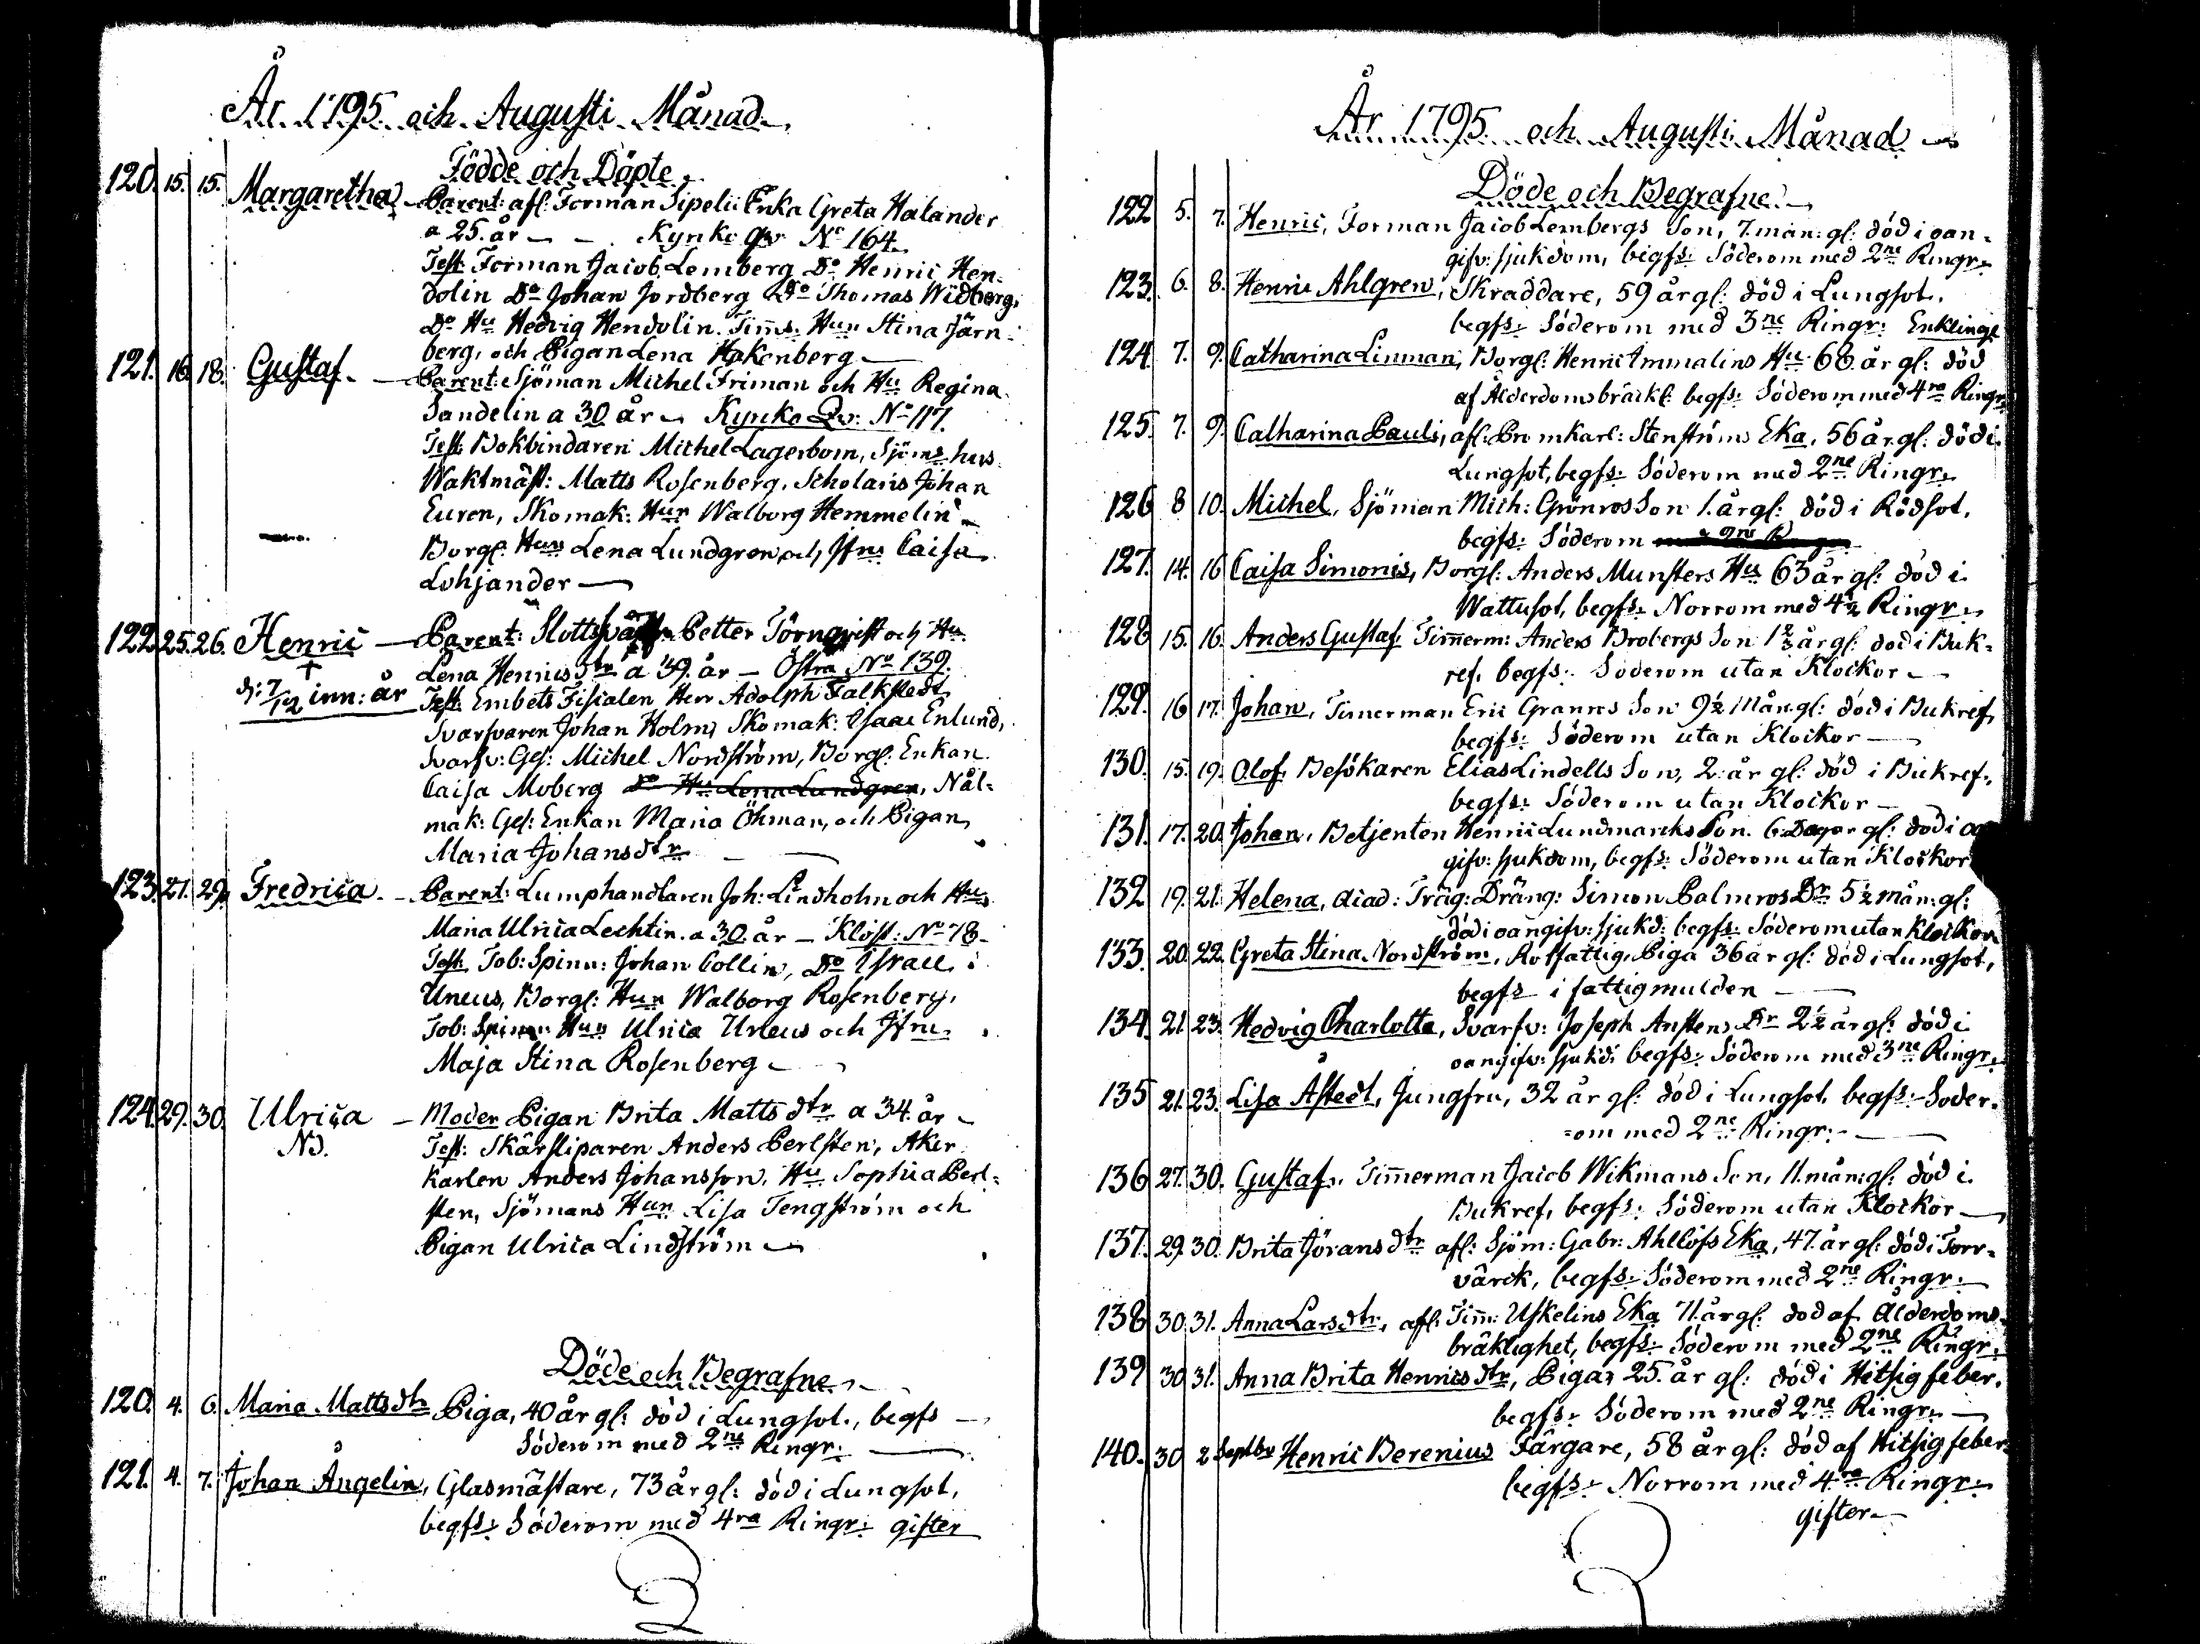 År 1795. och Augusti Månad.
Födde och Döpte
120. 15. 15. Margaretha Parent: afl: Forman Sipelii Enka Greta Halander
a 25. år Kyrko Qv No 164.
Test: Forman Jacob Lemberg Do Henric Hen-
dolin Do Johan Jordberg Do Thomas Widberg,
Do Hu Hedvig Hendolin. Tim̄s. Hun Stina Järn-
berg, och Pigan Lena Hakenberg
121. 16. 18. Gustaf. Parent: Sjöman Michel Friman och Hu Regina
Sandelin a 30 år Kyrko Qv: No 117.
Test: Bokbindaren Michel Lagerbom, Sjöms hus
Waktmäst: Matts Rosenberg, Scholaris Johan
Euren, Skomak: Hun Walborg Hemmelin
Borgl: Hun Lena Lundgren och Jfru Caisa
Lohjander
122. 25. 26. Henric Parent: Slotts Petter Törnqvist och Hu
Lena Henricsdtr a 39. år Östra No 139.
d: 7/12 inn: år Test: Embets Fiscalen Herr Adolph Falkstedt
Svarfvaren Johan Holm, Skomak: Isaac Enlund,
Svarfv: Ges: Michel Nordström, Borgl: Enkan
Caisa Moberg Do Hu Lena Lundgren, Nål-
mak: Ges: Enkan Maria Öhman, och Pigan
Maria Johansdtr
123. 27. 29. Fredrica Parent: Lumphandlaren Joh: Lindholm och Hu
Maria Ulrica Lechtin. a 30. år Klöst: No 78
Test: Tob: Spinn: Johan Collin, Do Israel
Uneus, Borgl: Hun Walborg Rosenberg,
Tob: Spinn: Hun Ulrica Uneus och Jfru
Maja Stina Rosenberg
124. 29. 30. Ulrica Moder Pigan Brita Matts dtr a 34. år
Nd. Test: Skärsliparen Anders Perlsten, Åker
Karlen Anders Johansson, Hu Sophia Perl-
sten, Sjömans Hun Lisa Tengström och
Pigan Ulrica Lindström
Döde och Begrafne
120. 4. 6. Maria Mattsdtr Piga, 40 år gl: död i Lungsot., begfs
Söderom med 2ne Ringr:
121. 4. 7. Johan Ångelin, Glasmästare, 73 år gl: död i Lungsot,
begfs: Söderom med 4ra Ringr: gifter
År 1795. och Augusti Månad
Döde och Begrafne
122 5. 7. Henric, Forman Jacob Lembergs Son, 7. mån: gl: död i oan-
gifv: sjukdom, begfs: Söderom med 2ne Ringr:
123. 6. 8. Henric Ahlgren, Skraddare, 59 år gl: död i Lungsot.
begfs: Söderom med 3ne Ringr: Enkling
124. 7. 9. Catharina Linman, Borgl: Henric Ammalins Hu 68. år gl: död
af Ålderdomsbräckl: begfs: Söderom med 4ra Ringr:
125. 7. 9. Catharina Pauli, afl: Bromkarl: Stenströms Eka, 56 år gl: död i
Lungsot, begfs: Söderom med 2ne Ringr:
126 8 10. Michel, Sjöman Mich: Grönros Son 1. år gl: död i Rödsot,
begfs: Söderom
127. 14. 16 Caisa Simonis, Borgl: Anders Munsters Hu 63 år gl: död i
Wattusot, begfs: Norrom med 4½ Ringr:
128 15. 16. Anders Gustaf, Tim̄erm: Anders Brobergs Son 1 2/3 år gl: död i Buk-
ref, begfs: Söderom utan Klockor
129. 16 17. Johan, Timerman Eric Granros Son 9½ Mån: gl: död i Bukref,
begfs: Söderom utan Klockor
130. 15. 19. Olof, Besökaren Elias Lindells Son, 2. år gl: död i Bukref,
begfs: Söderom utan Klockor
131. 17. 20. Johan, Betjenten Henric Lundmarcks Son. 6. Dagar gl: död i oan
gifv: sjukdom, begfs: Söderom utan Klockor
132 19. 21. Helena, Acad: Träg: Dräng: Simon Palmros Dr 5½ mån: gl:
död i oangifv: sjukd: begfs: Söderom utan Klockor
133. 20. 22. Greta Stina Nordström, Rotfattig, Piga 36 år gl: död i Lungsot,
begfs i fattigmulden
134. 21. 23. Hedvig Charlotta, Svarfv: Joseph Anstens Dr 2½ år gl: död i
oangifv: sjukd: begfs: Söderom med 3ne Ringr:
135 21. 23. Lisa Åstedt, Jungfru, 32 år gl: död i Lungsot, begfs: Söder-
=om med 2ne Ringr:
136 27. 30. Gustaf, Tim̄erman Jacob Wikmans Son, 11. mån: gl: död i
Bukref, begfs: Söderom utan Klockor
137. 29. 30. Brita Jöransdtr afl: Sjöm: Gabr: Ahllöfs Eka, 47. år gl: död i Torr-
värck, begfs: Söderom med 2ne Ringr:
138 30. 31. Anna Larsdtr, afl: Tim̄: Uskelins Eka 71. år gl: död af Ålderdoms-
bräklighet, begfs: Söderom med 2ne Ringr:
139 30 31. Anna Brita Henricsdtr, Piga, 25. år gl: död i Hitsig feber,
begfs: Söderom med 2ne Ringr:
140. 30 2 Septbr Henric Berenius Färgare, 58 år gl: död af Hitsig feber
begfs: Norrom med 4ra Ringr:
gifter